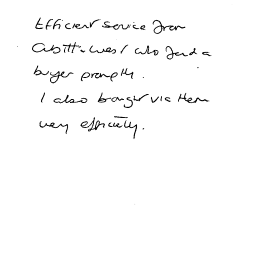 Efficient service from
Cubitt & West who found a
buyer promptly.
I also bought via them
very efficiently.